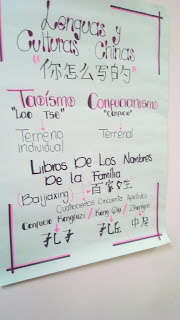 Lenguas y
Culturas Chinas
"你怎么写的"
Taoísmo Confucianismo
"Lao Tse" "Confucio"
Terreno Terrenal
individual
Libros De Los Nombres
De la Familia
(Baijiaxing) 百家姓
Cuatrocientos Cincuenta Apellidos
Confucio Kongfuzi / Kong Qiu / Zhongni
孔子 孔丘 中尼